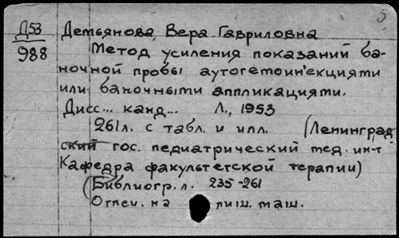 5
Д53
988
Демьянова, Вера Гавриловна
Метод усиления показаний ба-
ночной пробы аутогемоинъекциями
или баночными аппликациями.
Дисс... канд... Л., 1953
261л. с табл. и илл. (Ленинград
ский гос. педиатрический мед. ин-т
Кафедра факультетской терапии)
(Библиогр. л. 235-261
Отпеч. на пиш. маш.